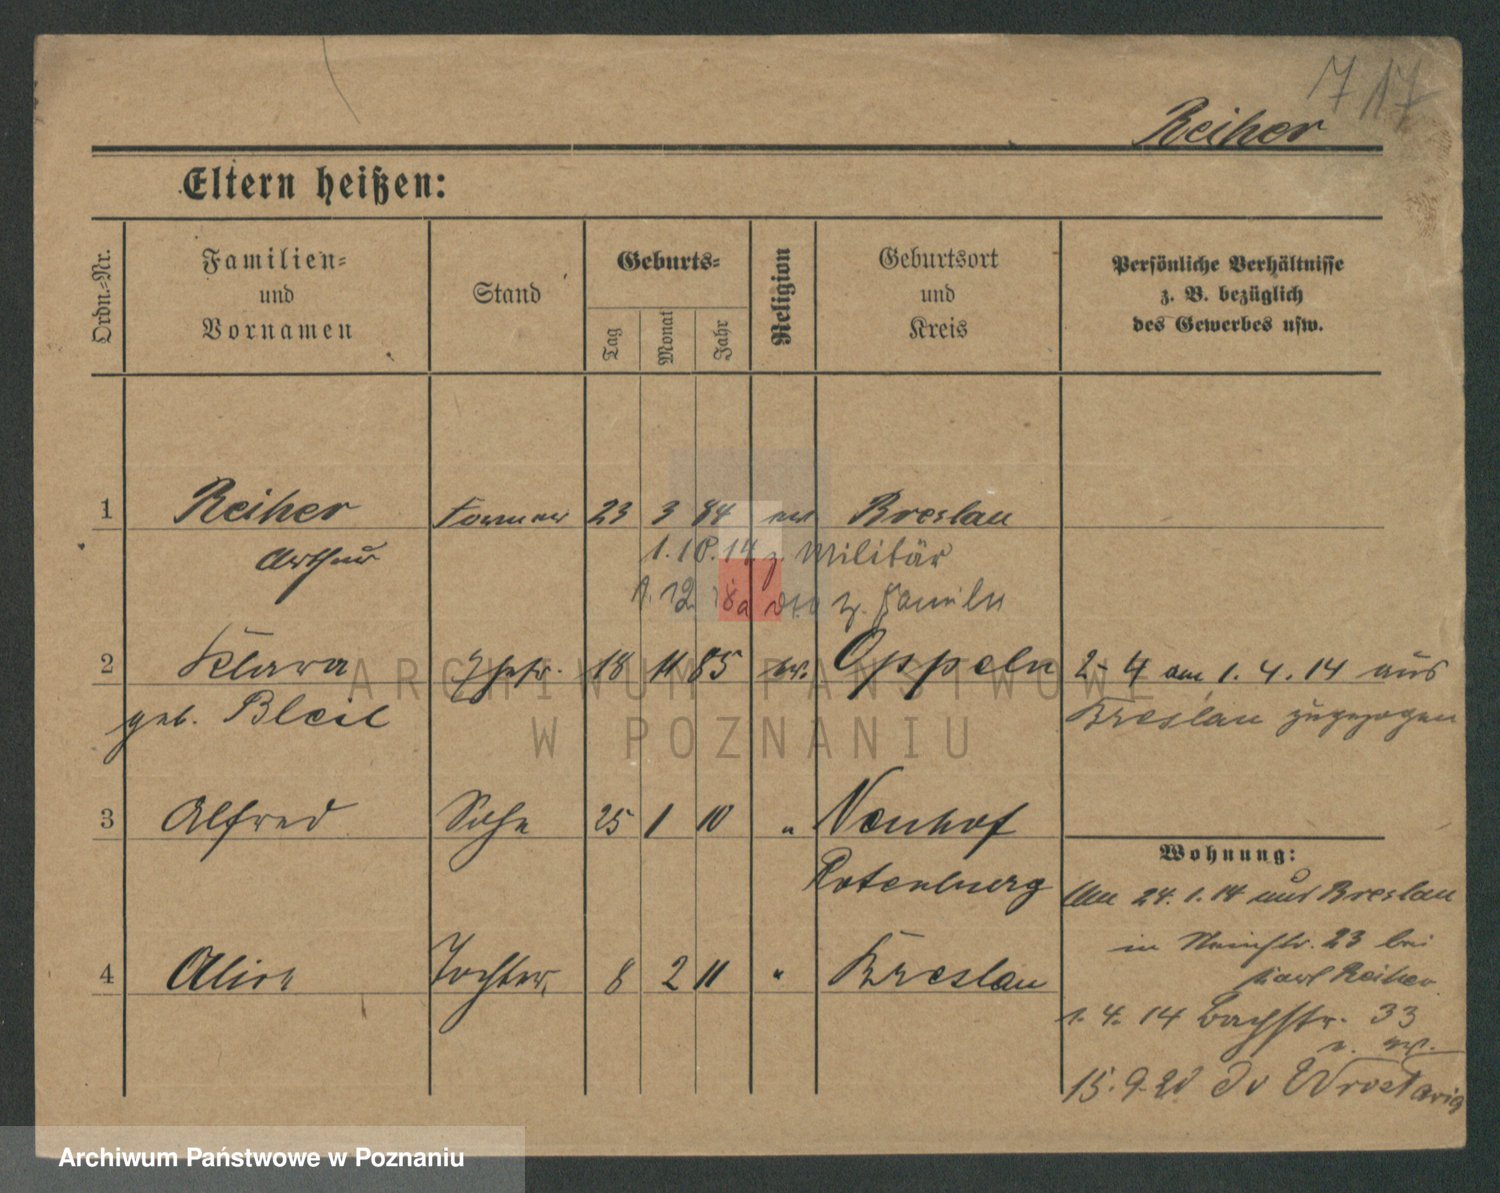 717
Reiher
Eltern heißen:
Ordn.-Nr.
Familien-
und
Vornamen
Stand
Geburts-
Tag
Monat
Jahr
Religion
Geburtsort
und
Kreis
Persönliche Verhältnisse
z. B. bezüglich
des Gewerbes usw.
1 Reiher Former 23 3 84 ev Breslau
Arthur 14 z. Militär
1. 12. z. Familie
2 Klara Ehefr. 18 11 85 ev. Oppeln 2-4 am 1.4.14 aus
geb. Bleil Breslau zugezogen
ARCHIWUM PAŃSTWOWE
W POZNANIU
3 Alfred Sohn 25 1 10 " Neuhof
Wohnung:
Rotenburg Am 24.1.14 aus Breslau
in 23 bei
4 Alice Tochter 8 2 11 " Breslau Karl Reiher
1.4.14 Bachstr. 33
15.9.20
Archiwum Państwowe w Poznaniu